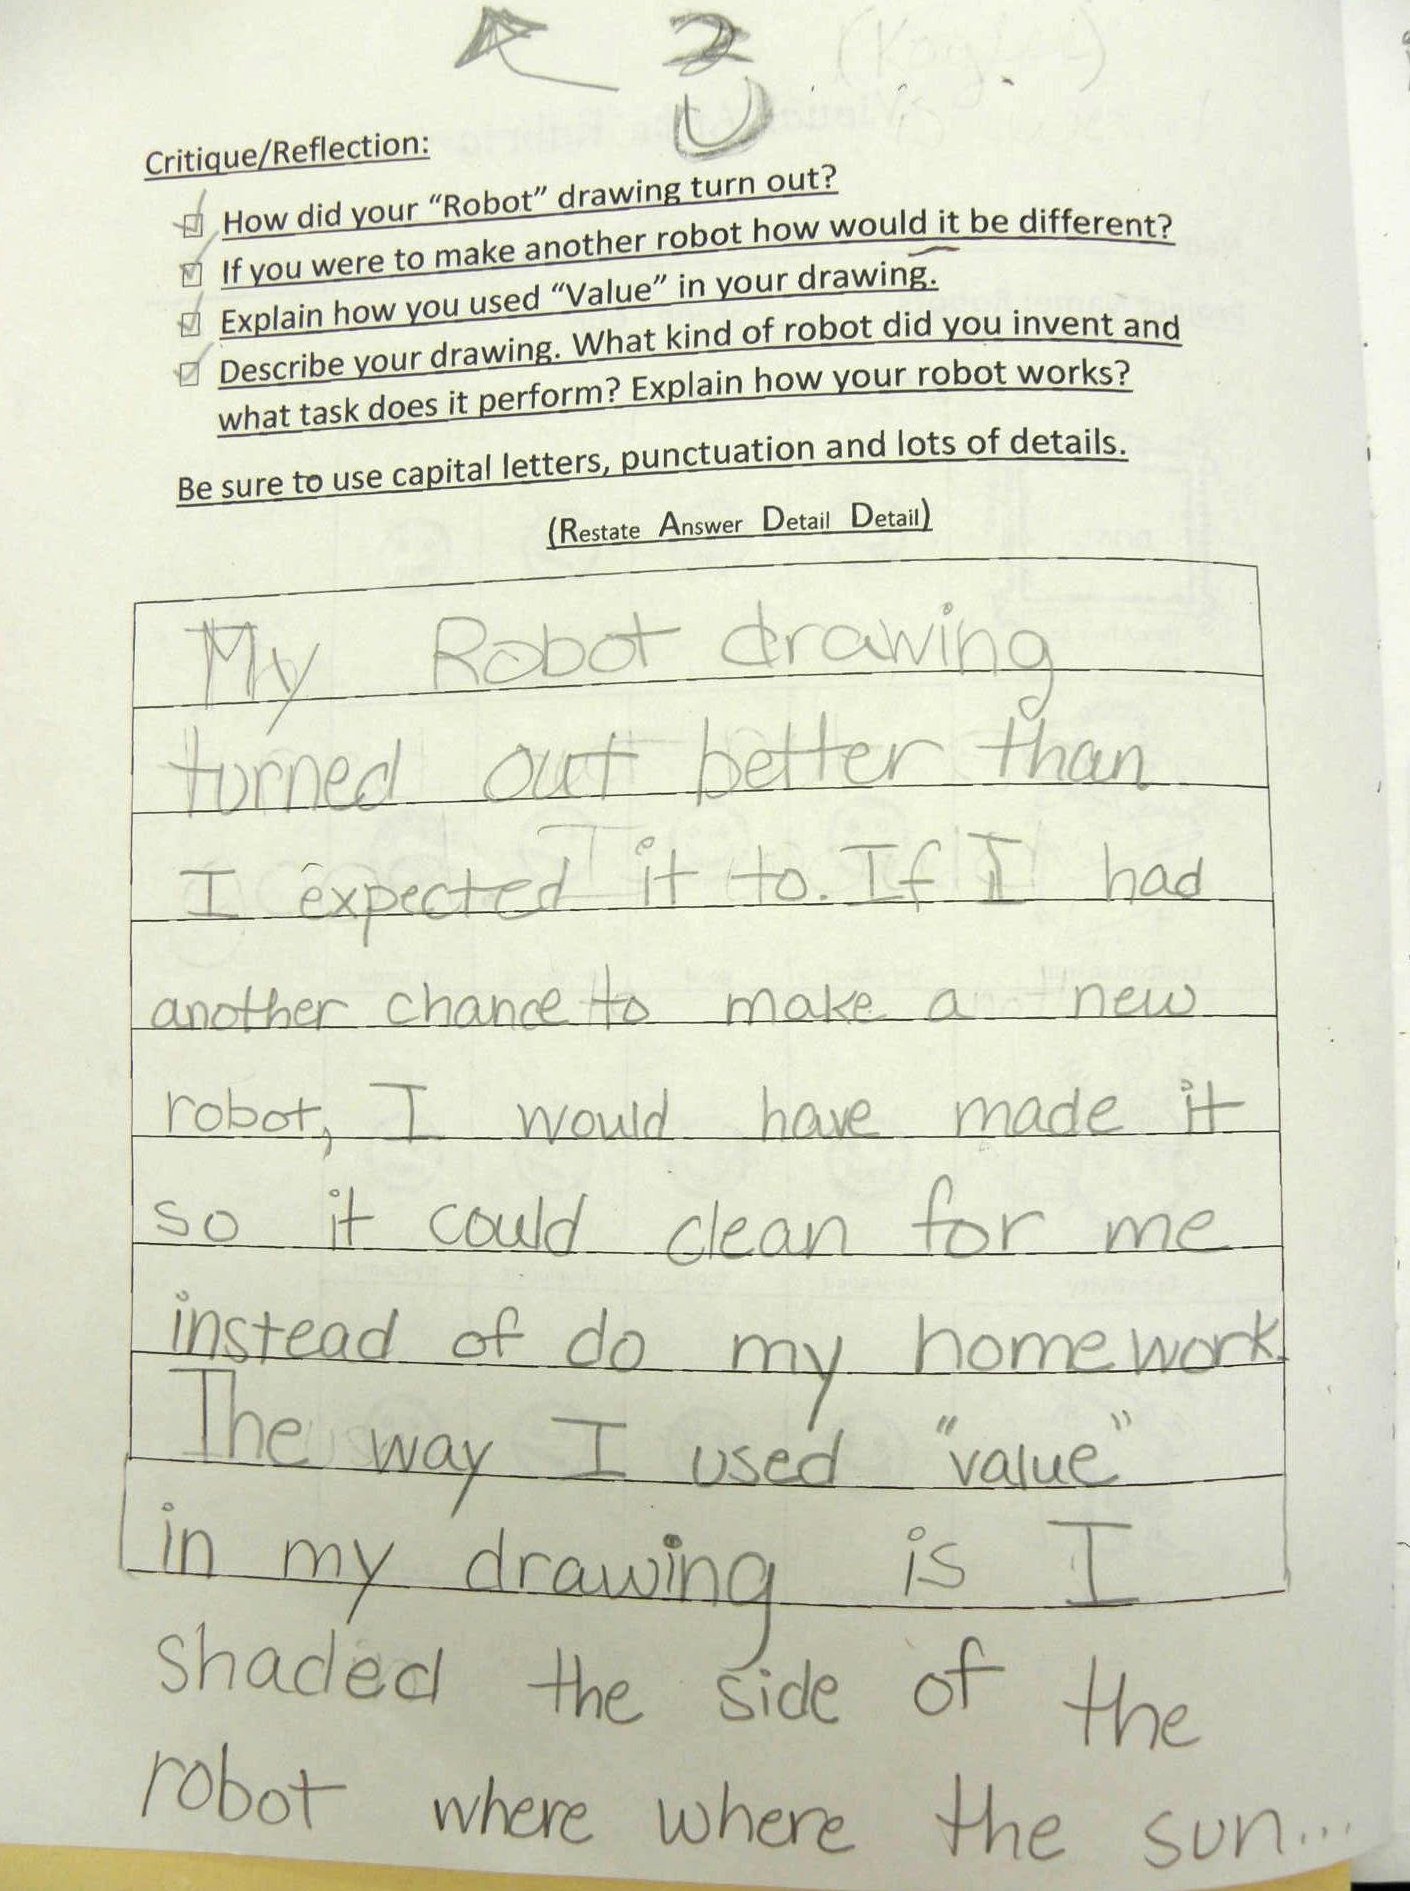 2
Critique/Reflection:
How did your "Robot" drawing turn out?
If you were to make another robot how would it be different?
Explain how you used "Value" in your drawing.
Describe your drawing. What kind of robot did you invent and
what task does it perform? Explain how your robot works?
Be sure to use capital letters, punctuation and lots of details.
(Restate Answer Detail Detail)
My Robot drawing
turned out better than
I expected it to. If I had
another chance to make a new
robot, I would have made it
so it could clean for me
instead of do my homework.
The way I used "value"
in my drawing is I
shaded the side of the
robot where where the sun...